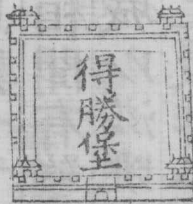 得勝堡